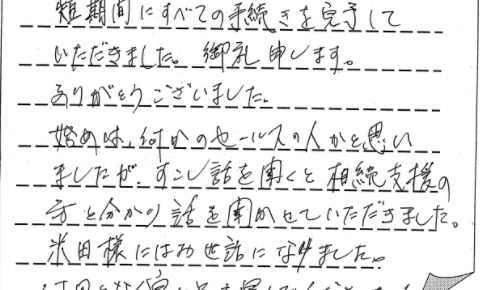 短期間にすべての手続きを完了して
いただきました。御礼申します。
ありがとうございました。
始めは、何かのセールスの人かと思い
ましたが、すこし話を聞くと相続支援の
方と分かり話を聞かせていただきました。
米田様にはお世話になりました。